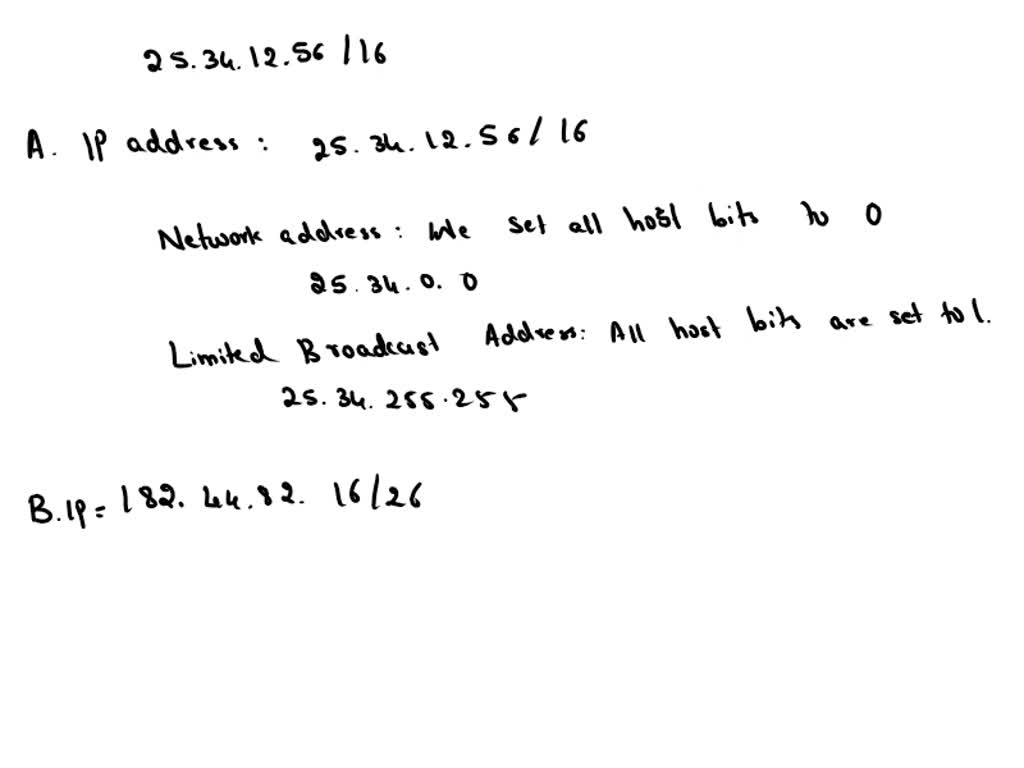 25.34.12.56/16
A. IP address: 25.34.12.56/16
Network address: We set all host bits to 0
25.34.0.0
Limited Broadcast Address: All host bits are set to 1.
25.34.255.255
B. IP = 182.44.82.16/26